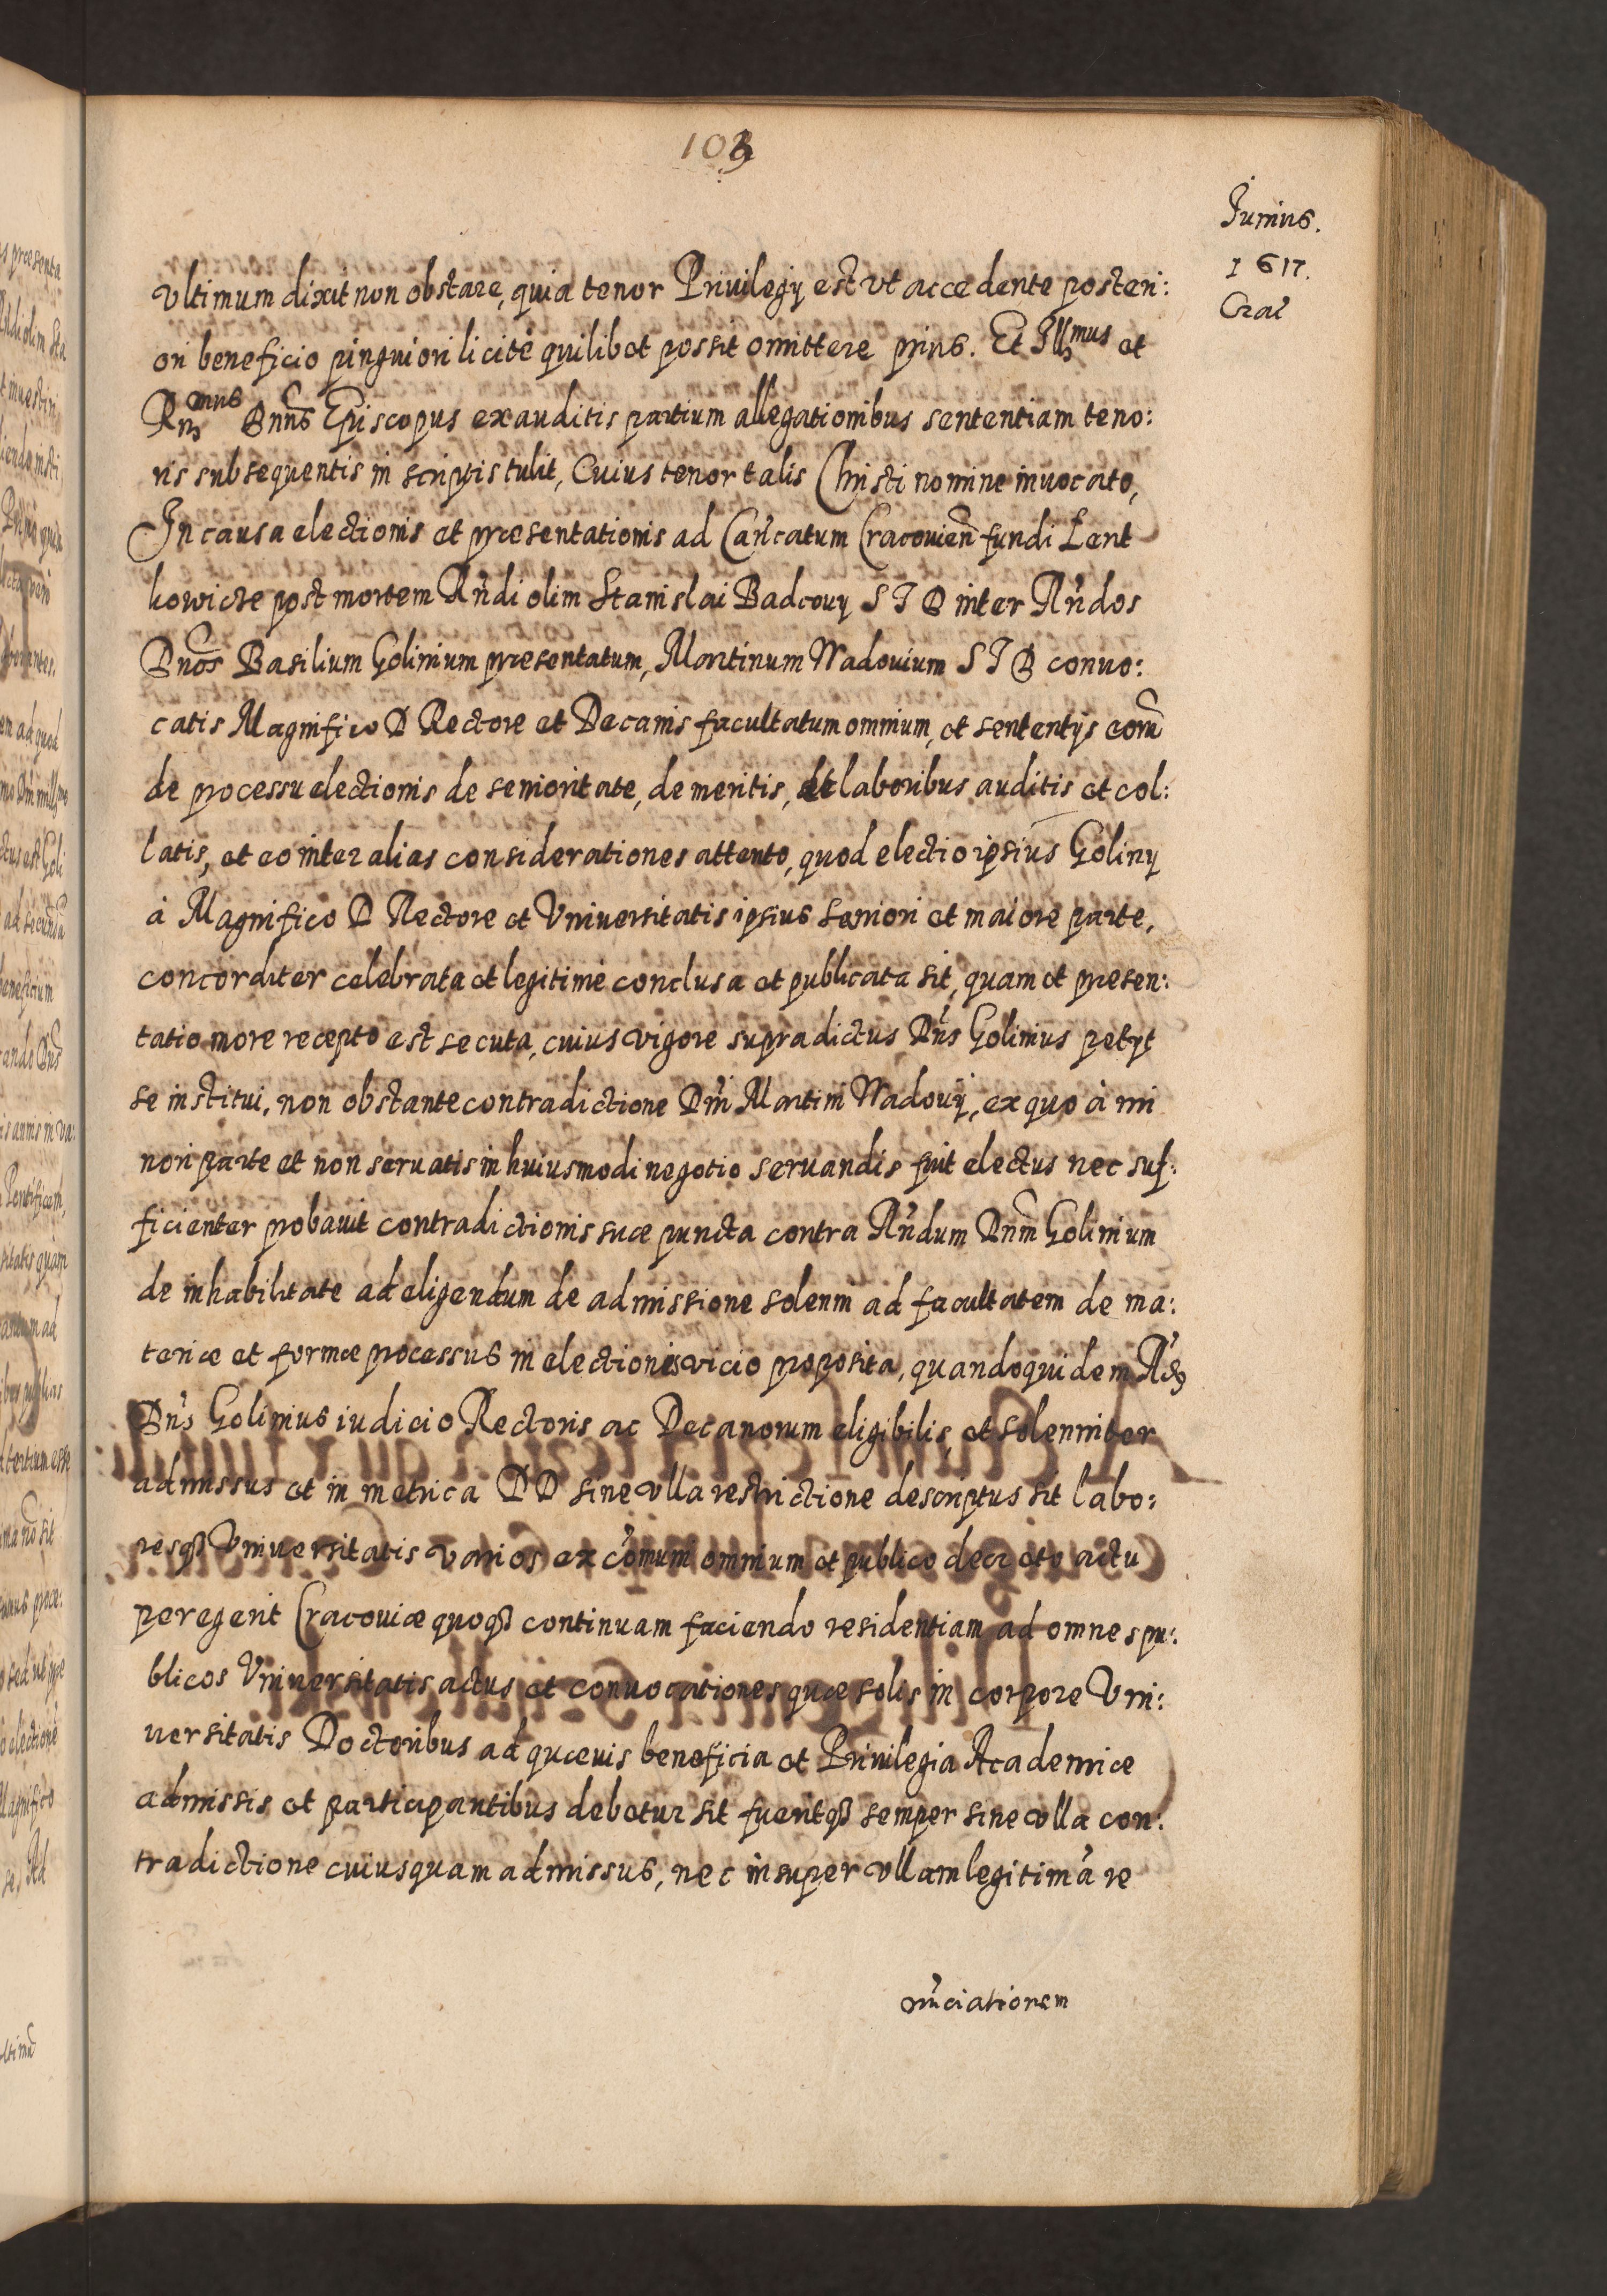 103
Junius.
1617.
Crac̃
vltimum dixit non obstare, quia tenor Priuilegij est vt accedente posteri:
ori beneficio pinguiori licitè quilibet possit omittere prius. Et Illmus et
Rmus Dnns Episcopus exauditis partium allegationibus sententiam teno:
ris subsequentis in scriptis tulit, Cuius tenor talis Christi nomine inuocato,
In causa electionis et præsentationis ad Cañcatum Cracouien̄ fundi Lent
kowicze post mortem Rñdi olim Stanislai Badcouij S T D inter Rñdos
Dnōs Basilium Golinium præsentatum, Martinum Wadouium S T D conuo:
catis Magnifico D Rectore et Decanis facultatum omnium, et sententijs eorū
de processu electionis de senioritate, de meritis, et laboribus auditis et col:
latis, et eo inter alias considerationes attento, quod electio ipsius Golinij
à Magnifico D Rectore et Vniuersitatis ipsius seniori et maiore parte,
concorditer celebrata et legitimè conclusa et publicata sit, quam et præsen:
tatio more recepto est secuta, cuius vigore supradictus Dñs Golinius petijt
se institui, non obstante contradictione Dñi Martini Wadouij, ex quo à mi
nori parte et non seruatis in huiusmodi negotio seruandis fuit electus nec suf:
ficienter probauit contradictionis suæ puncta contra Rñdum Dnm̄ Golinium
de inhabilitate ad eligendum de admissione solenni ad facultatem de ma:
teriæ et formæ processus in electionis vicio proposita, quandoquidem Rd9
Dñs Golinius iudicio Rectoris ac Decanorum eligibilis, et solenniter
admissus et in metrica D D sine vlla restrictione descriptus sit labo:
resq3 Vniuersitatis varios ex com̃uni omnium et publico decreto actu
peregerit Cracouiæ quoq3 continuam faciendo residentiam ad omnes pu:
blicos Vniuersitatis actus et conuocationes quæ solis in corpore Vni:
uersitatis Doctoribus ad quæuis beneficia et Priuilegia Academiæ
admissis et participantibus debetur sit fueritq3 semper sine vlla con:
tradictione cuiusquam admissus, nec insuper vllam legitimā re
nũciationem